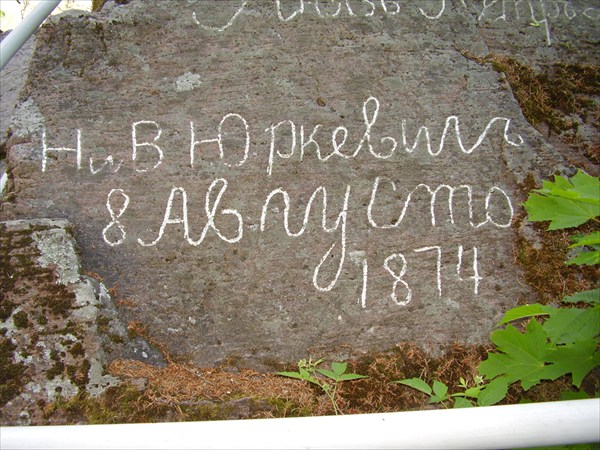 Н и В Юркевичъ
8 Августа
1874